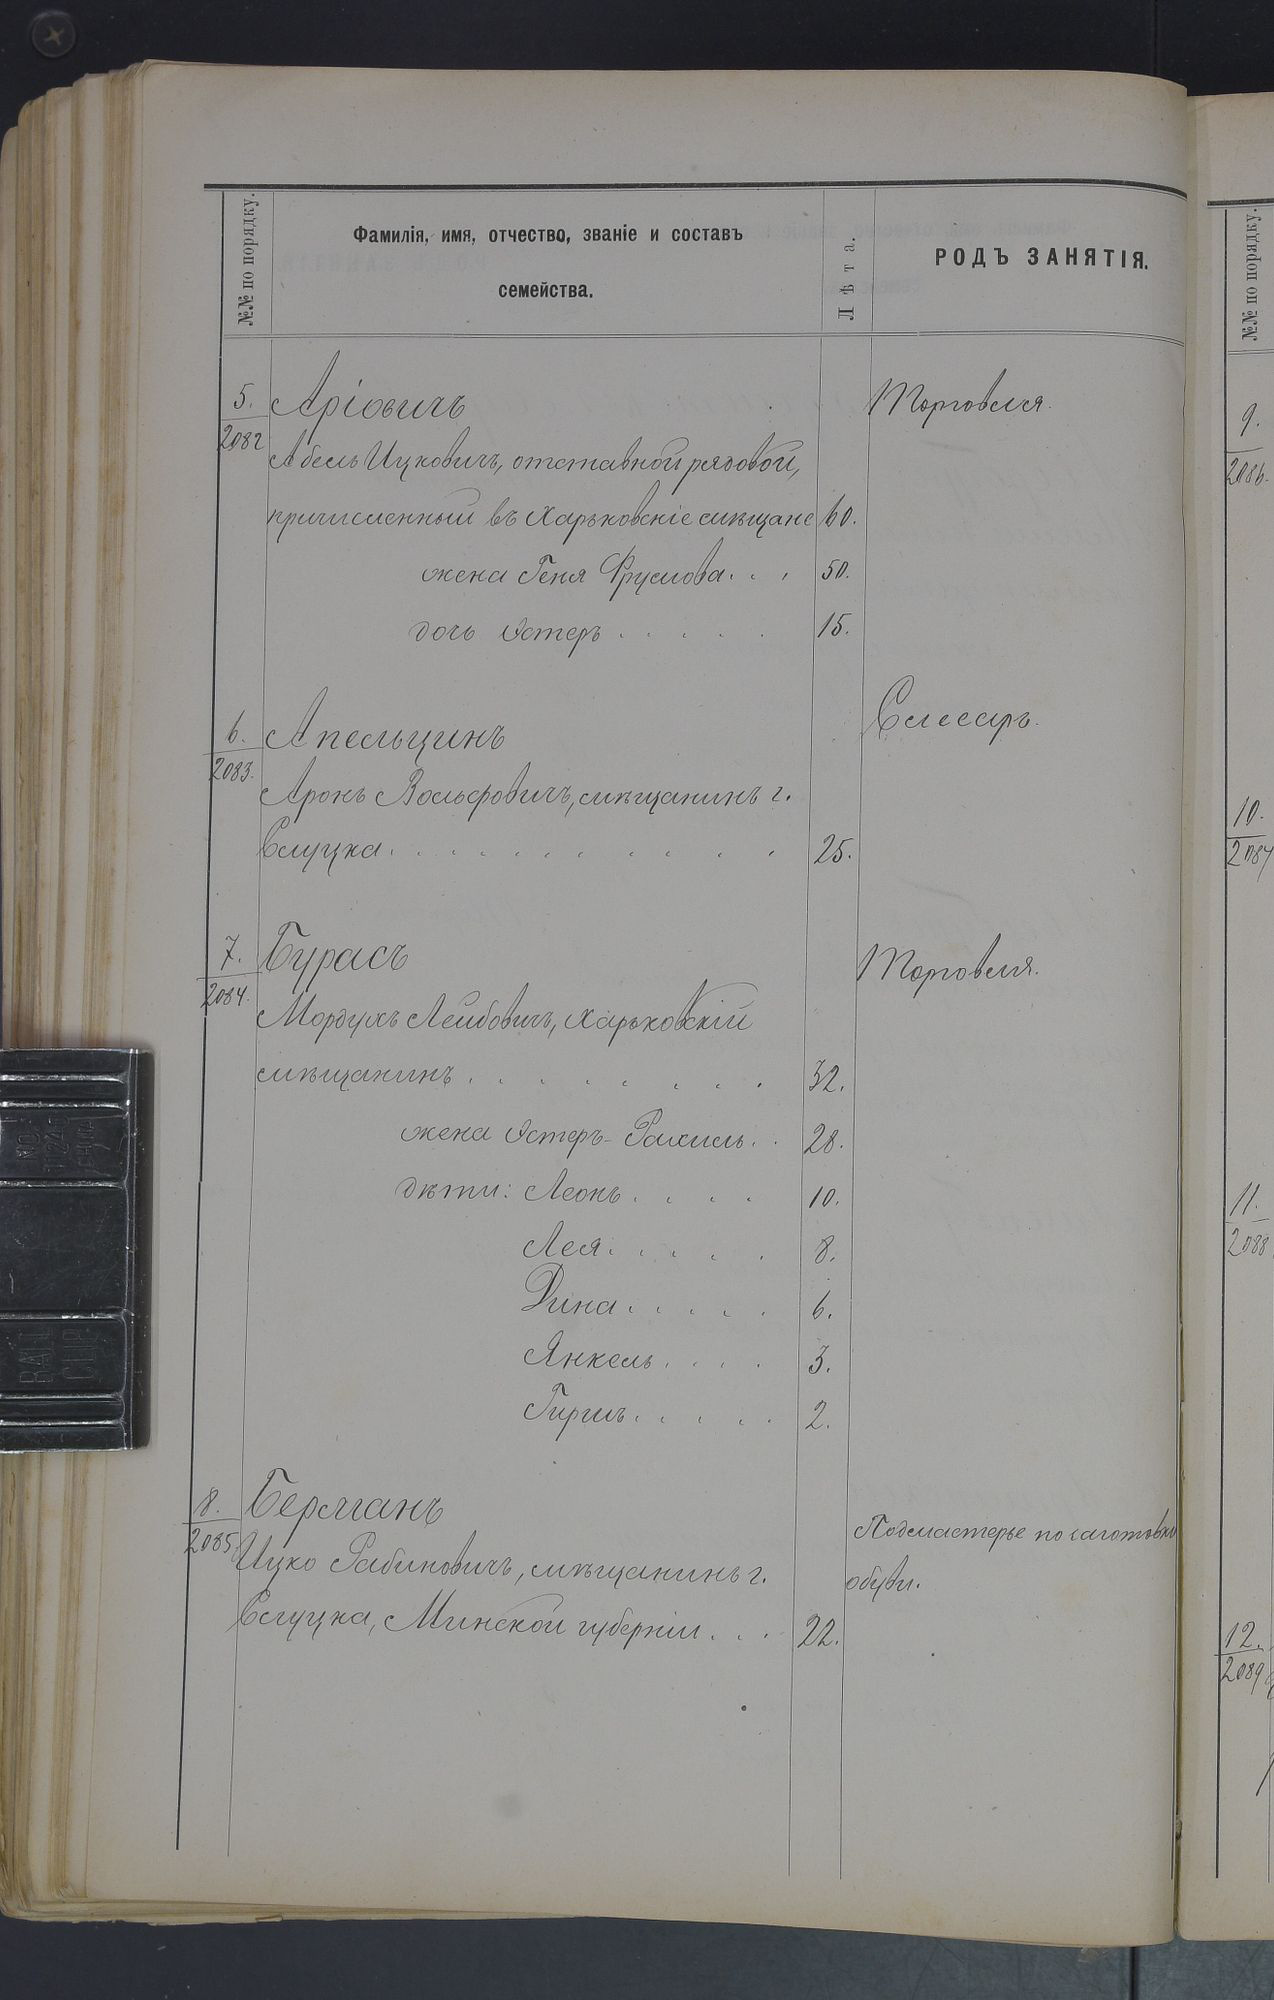 №№ по порядку.
Фамилія, имя, отчество, званіе и составъ
семейства.
Лѣта.
РОДЪ ЗАНЯТІЯ.
5.
2082
Аріовичъ
Торговля.
Абель Ицковичъ, отставной рядовой,
причисленный въ Харьковскіе мѣщане 60.
жена Геня Фрумова . . . 50.
дочь Эстеръ . . . . . 15.
6.
2083.
Апельцинъ
Слесарь.
Аронъ Вольфовичъ, мѣщанинъ г.
Слуцка . . . . . . . . . . . . 25.
7.
2084.
Бурасъ
Торговля.
Мордухъ Лейбовичъ, Харьковскій
мѣщанинъ . . . . . . . . 32.
жена Эстеръ-Рахиль . . 28.
дѣти: Леонъ . . . . 10.
Лея . . . . . 8.
Дина . . . . . 6.
Янкель . . . . 3.
Гиршъ . . . . . 2.
8.
2085.
Берманъ
Подмастерье по заготовкѣ
обуви.
Ицко Рабиновичъ, мѣщанинъ г.
Слуцка, Минской губерніи . . . 22.
№№ по порядку.
9.
2086.
10.
2087
11.
2088
12.
2089
NO.
11240
CHINA
BALL
CLIP